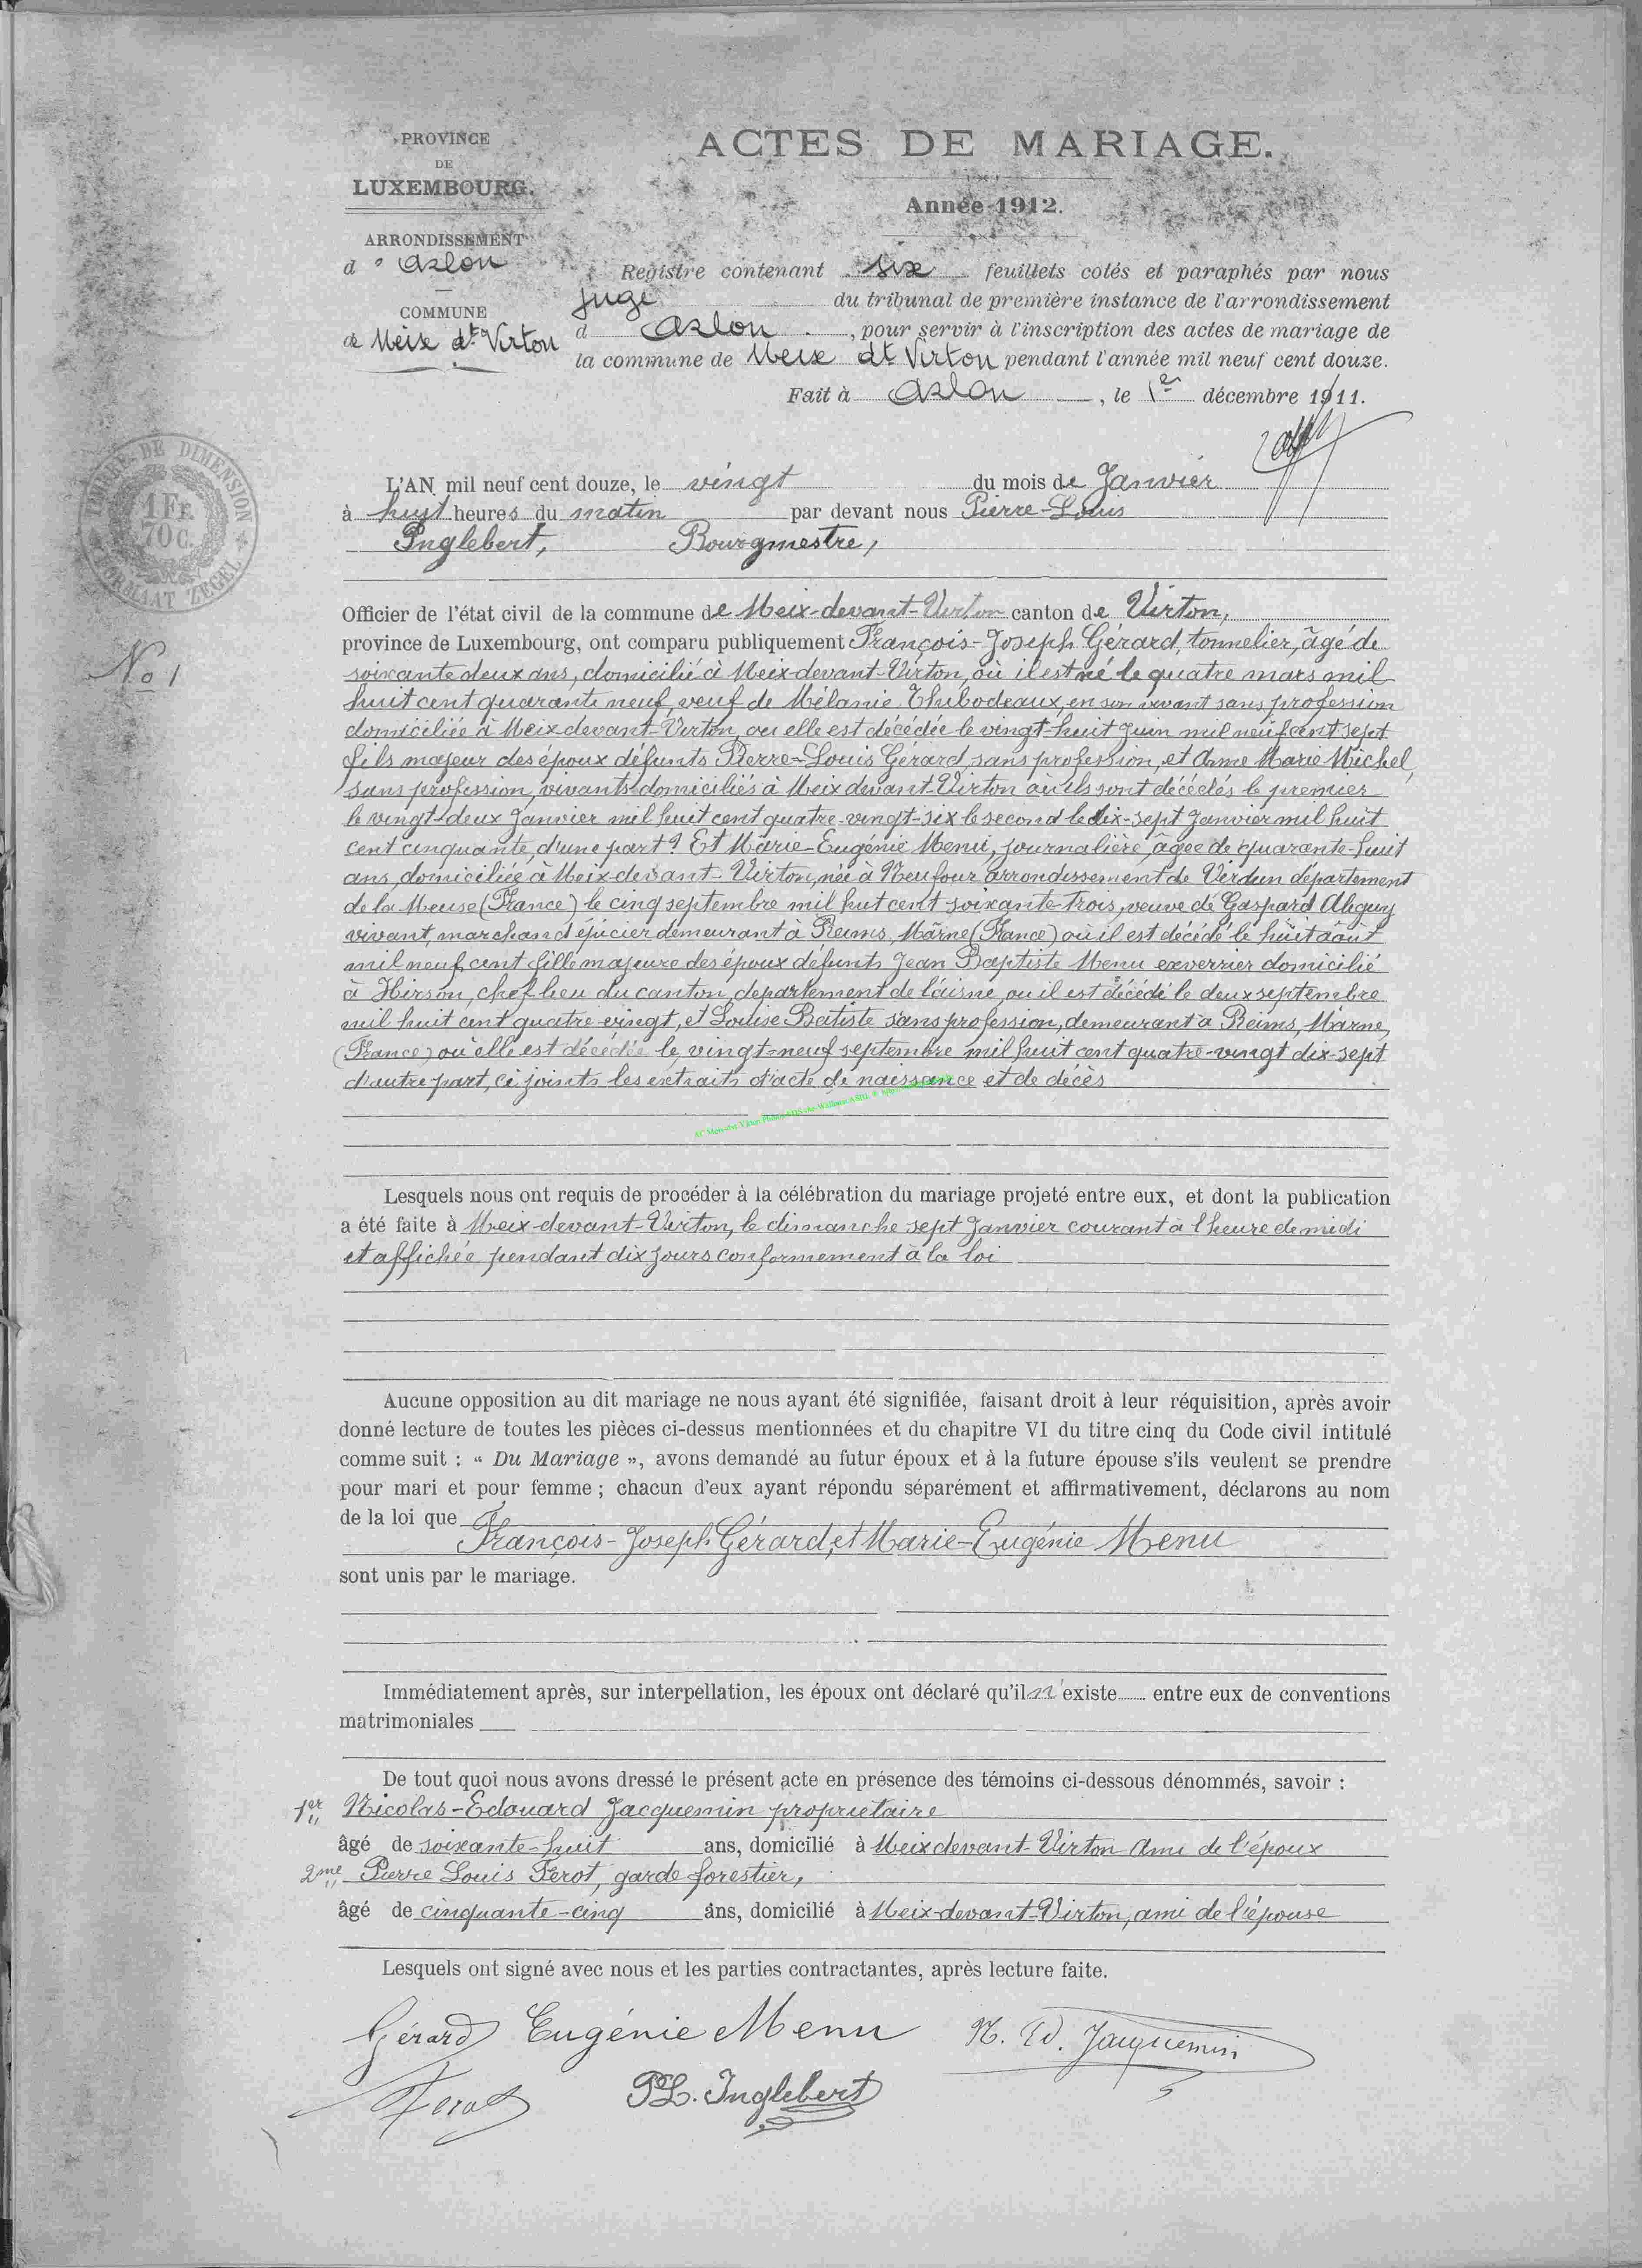 PROVINCE
DE
LUXEMBOURG.
ARRONDISSEMENT
d'Arlon
COMMUNE
de Meix dt Virton
ACTES DE MARIAGE.
Année 1912.
Registre contenant six feuillets cotés et paraphés par nous
juge du tribunal de première instance de l'arrondissement
d Arlon, pour servir à l'inscription des actes de mariage de
la commune de Meix dt Virton pendant l'année mil neuf cent douze.
Fait à Arlon, le 1er décembre 1911.
TIMBRE DE DIMENSION
1 Fr.
70 C.
FORMAAT ZEGEL
No 1
L'AN mil neuf cent douze, le vingt du mois de Janvier
à huit heures du matin par devant nous Pierre-Louis
Inglebert, Bourgmestre,
Officier de l'état civil de la commune de Meix-devant-Virton canton de Virton,
province de Luxembourg, ont comparu publiquement François-Joseph Gérard, tonnelier, âgé de
soixante deux ans, domicilié à Meix-devant-Virton, où il est né le quatre mars mil
huit cent quarante neuf, veuf de Mélanie Thibodeaux, en son vivant sans profession
domiciliée à Meix devant-Virton, ou elle est décédée le vingt-huit Juin mil neuf cent sept
fils majeur des époux défunts Pierre-Louis Gérard, sans profession, et Anne Marie Michel,
sans profession, vivants domiciliés à Meix devant-Virton où ils sont décédés le premier
le vingt-deux Janvier mil huit cent quatre-vingt-six le second le dix-sept Janvier mil huit
cent cinquante, d'une part? Et Marie-Eugénie Menu, journalière, âgée de quarante-huit
ans, domiciliée à Meix-devant-Virton, née à Neufour arrondissement de Verdun département
de la Meuse (France) le cinq septembre mil huit cent soixante-trois, veuve de Gaspard
vivant, marchand épicier demeurant à Reims, Marne (France) où il est décédé le huit août
mil neuf cent fille majeure des époux défunts Jean Baptiste Menu exverrier domicilié
à Hirson, chef lieu du canton, département de l'aisne, ou il est décédé le deux septembre
mil huit cent quatre vingt, et Louise Batiste sans profession, demeurant à Reims, Marne,
(France) où elle est décédée le vingt-neuf septembre mil huit cent quatre-vingt dix-sept
d'autre part, ci joints les extraits d'acte de naissance et de décès
Lesquels nous ont requis de procéder à la célébration du mariage projeté entre eux, et dont la publication
a été faite à Meix-devant-Virton, le dimanche sept Janvier courant à l'heure de midi
et affichée pendant dix jours conformement à la loi
Aucune opposition au dit mariage ne nous ayant été signifiée, faisant droit à leur réquisition, après avoir
donné lecture de toutes les pièces ci-dessus mentionnées et du chapitre VI du titre cinq du Code civil intitulé
comme suit : « Du Mariage », avons demandé au futur époux et à la future épouse s'ils veulent se prendre
pour mari et pour femme ; chacun d'eux ayant répondu séparément et affirmativement, déclarons au nom
de la loi que
François-Joseph Gérard, et Marie-Eugénie Menu
sont unis par le mariage.
Immédiatement après, sur interpellation, les époux ont déclaré qu'il n'existe entre eux de conventions
matrimoniales
De tout quoi nous avons dressé le présent acte en présence des témoins ci-dessous dénommés, savoir :
1er Nicolas-Edouard Jacquemin propriétaire
âgé de soixante-huit ans, domicilié à Meix devant-Virton Ami de l'époux
2me Pierre Louis Ferot, garde forestier,
âgé de cinquante-cinq ans, domicilié à Meix-devant-Virton, ami de l'épouse
Lesquels ont signé avec nous et les parties contractantes, après lecture faite.
Gérard Eugénie Menu N. Ed. Jacquemin
Ferot PL. Inglebert